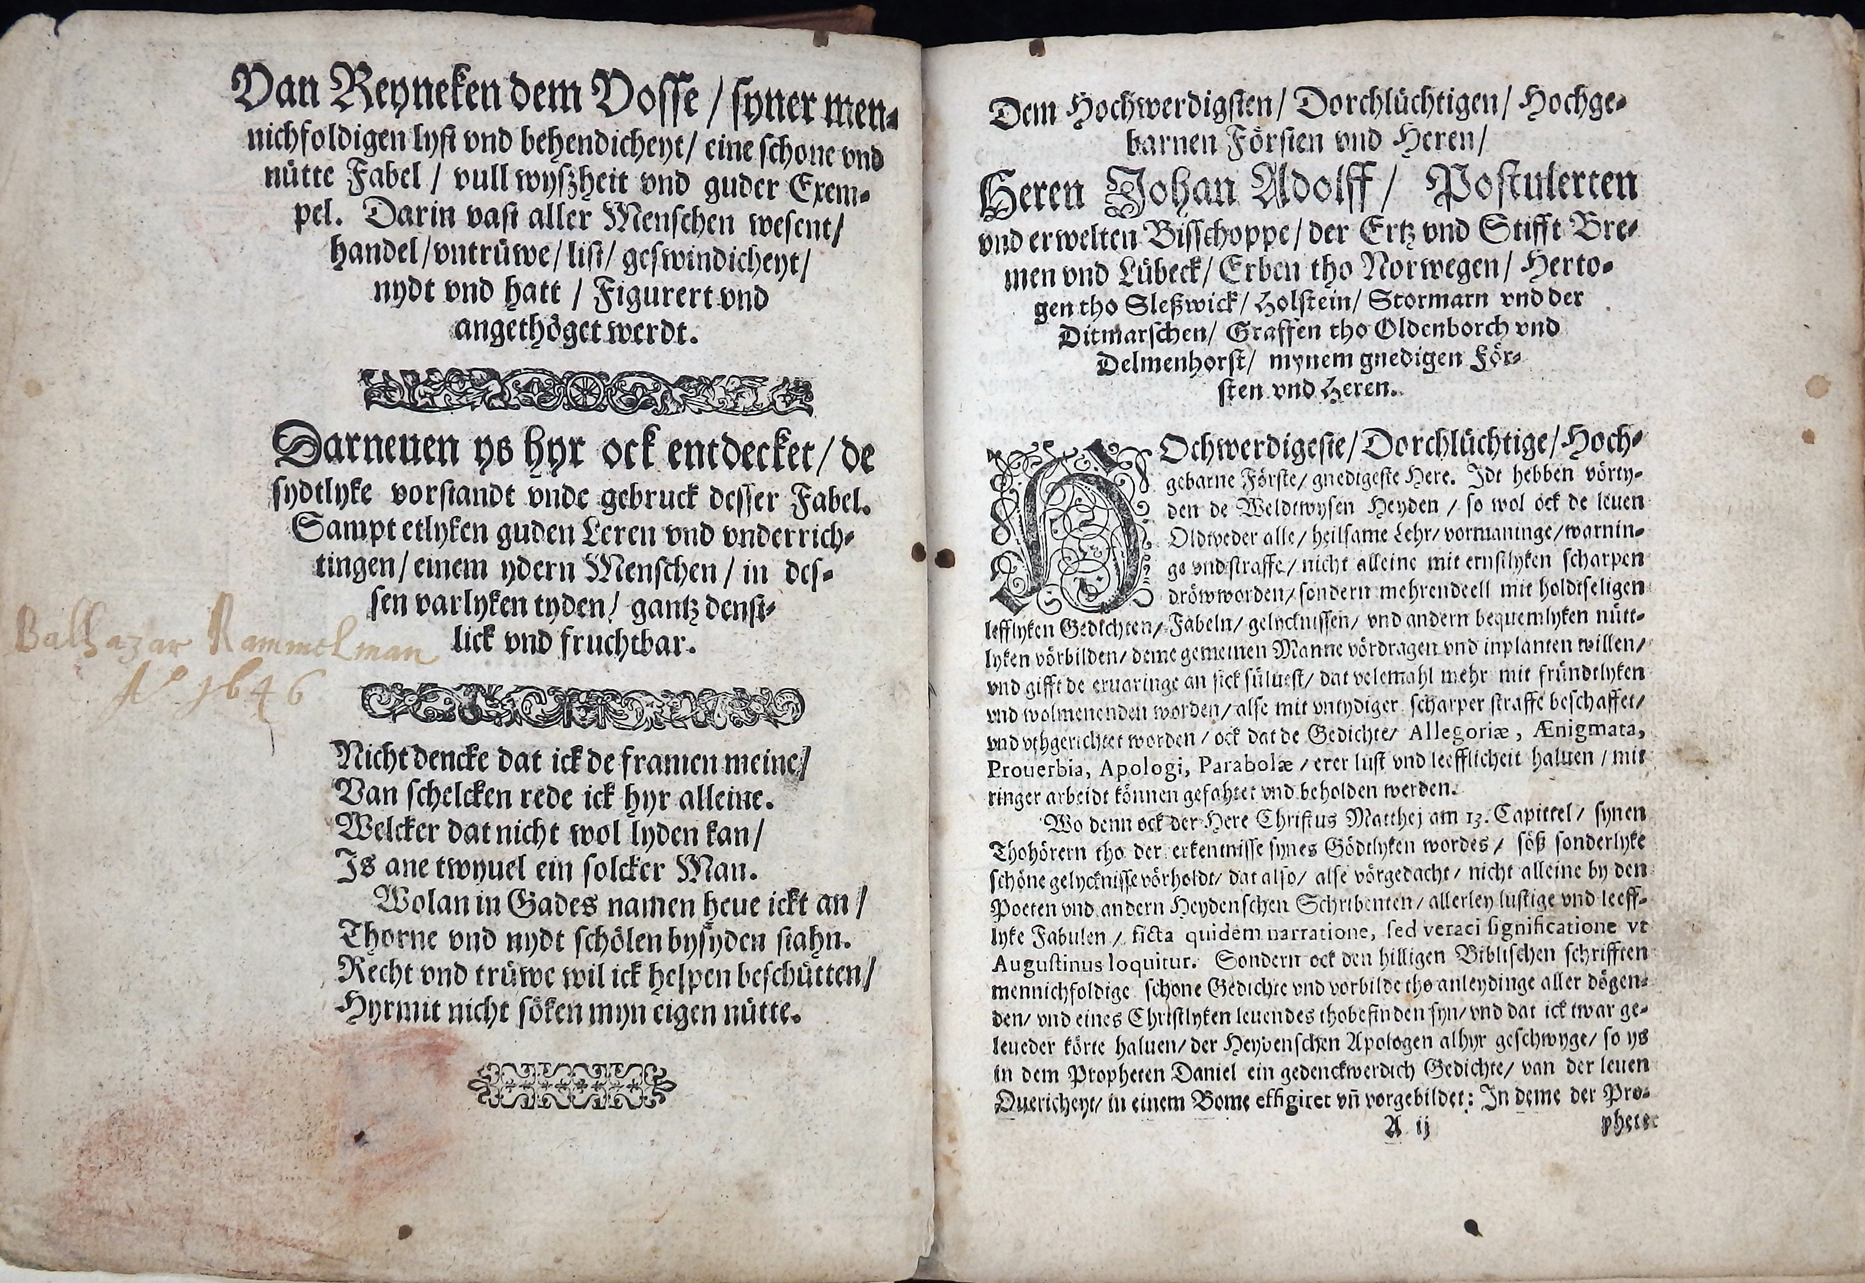 Van Reyneken dem Vosse / syner men-
nichfoldigen lyst vnd behendicheyt / eine schone vnd
nütte Fabel / vull wyszheit vnd guder Exem-
pel. Darin vast aller Menschen wesent /
handel / vntrüwe / list / geswindicheyt /
nydt vnd hatt / Figurert vnd
angethöget werdt.
Darneuen ys hyr ock entdecket / de
sydtlyke vorstandt vnde gebruck desser Fabel.
Sampt etlyken guden Leren vnd vnderrich-
tingen / einem ydern Menschen / in des-
sen varlyken tyden / gantz denst-
lick vnd fruchtbar.
Balhazar Rammelman
Aº 1646
Nicht dencke dat ick de framen meine /
Van schelcken rede ick hyr alleine.
Welcker dat nicht wol lyden kan /
Is ane twyuel ein solcker Man.
Wolan in Gades namen heue ickt an /
Thorne vnd nydt schölen bysyden stahn.
Recht vnd trüwe wil ick helpen beschütten /
Hyrmit nicht söken myn eigen nütte.
Dem Hochwerdigsten / Dorchlüchtigen / Hochge-
barnen Försten vnd Heren /
Heren Johan Adolff / Postulerten
vnd erwelten Bisschoppe / der Ertz vnd Stifft Bre-
men vnd Lübeck / Erben tho Norwegen / Herto-
gen tho Sleßwick / Holstein / Stormarn vnd der
Ditmarschen / Graffen tho Oldenborch vnd
Delmenhorst / mynem gnedigen För-
sten vnd Heren.
HOchwerdigeste / Dorchlüchtige / Hoch-
gebarne Förste / gnedigeste Here. Idt hebben vörty-
den de Weldtwysen Heyden / so wol ock de leuen
Oldtveder alle / heilsame Lehr / vormaninge / warnin-
ge vnd straffe / nicht alleine mit ernstlyken scharpen
dröwworden / sondern mehrendeell mit holdtseligen
lefflyken Gedichten / Fabeln / gelycknissen / vnd andern bequemlyken nütt-
lyken vörbilden / deme gemeinen Manne vördragen vnd inplanten willen /
vnd gifft de eruaringe an sick süluest / dat velemahl mehr mit fründtlyken
vnd wolmenenden worden / alse mit vntydiger scharper straffe beschaffet /
vnd vthgerichtet worden / ock dat de Gedichte / Allegoriæ, Ænigmata,
Prouerbia, Apologi, Parabolæ / erer lust vnd leefflicheit haluen / mit
ringer arbeidt können gefahtet vnd beholden werden.
Wo denn ock der Here Christus Matthej am 13. Capittel / synen
Thohörern tho der erkentnisse synes Gödtlyken wordes / söß sonderlyke
schöne gelycknisse vörholdt / dat also / alse vörgedacht / nicht alleine by den
Poeten vnd andern Heydenschen Schribenten / allerley lustige vnd leeff-
lyke Fabulen / ficta quidem narratione, sed veraci significatione vt
Augustinus loquitur. Sondern ock den hilligen Biblischen schrifften
mennichfoldige schone Gedichte vnd vorbilde tho anleydinge aller dögen-
den / vnd eines Christlyken leuendes thobefinden syn / vnd dat ick twar ge-
leueder körte haluen / der Heydenschen Apologen alhyr geschwyge / so ys
in dem Propheten Daniel ein gedenckwerdich Gedichte / van der leuen
Ouericheyt / in einem Bome effigiret vñ vorgebildet: In deme der Pro-
A ij
phete